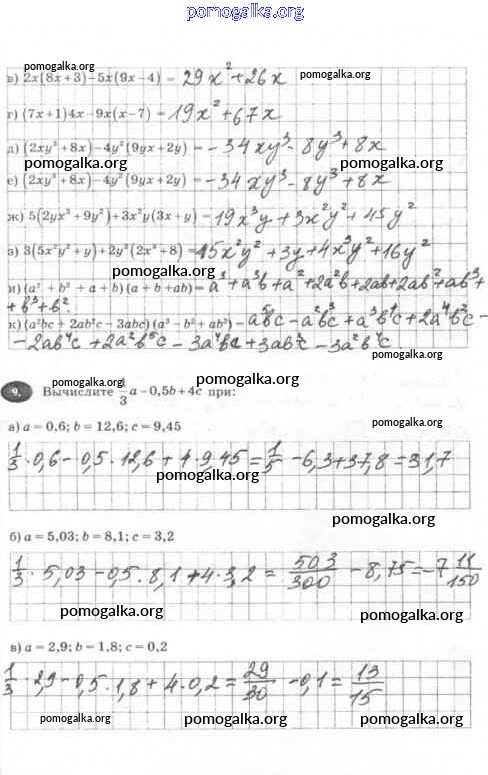 pomogalka.org
pomogalka.org
в) 2x(8x+3)−5x(9x−4) = 29x² + 26x
pomogalka.org
г) (7x+1)4x−9x(x−7) = 19x² + 67x
д) (2xy³+8x)−4y²(9yx+2y) = −34xy³ − 8y³ + 8x
pomogalka.org pomogalka.org
е) (2xy³+8x)−4y²(9yx+2y) = −34xy³ − 8y³ + 8x
ж) 5(2yx³+9y²)+3x²y(3x+y) = 19x³y + 3x²y² + 45y²
з) 3(5x²y²+y)+2y²(2x³+8) = 15x²y² + 3y + 4x³y² + 16y²
pomogalka.org
и) (a² + b² + a + b)(a + b + ab) = a³ + a³b + a² + 2a²b + 2ab + 2ab² + ab³ +
+ b³ + b².
к) (a²bc + 2ab²c − 3abc)(a³ − b² + ab³) = a⁵bc − a²b³c + a³b⁴c + 2a⁴b²c −
− 2ab⁴c + 2a²b⁵c − 3a⁴bc + 3ab³c − 3a²b⁴c.
pomogalka.org
9. Вычислите 1/3 a − 0,5b + 4c при:
pomogalka.org
а) a = 0,6; b = 12,6; c = 9,45
1/3 · 0,6 − 0,5 · 12,6 + 4 · 9,45 = 1/5 − 6,3 + 37,8 = 31,7
pomogalka.org
pomogalka.org
б) a = 5,03; b = 8,1; c = 3,2
1/3 · 5,03 − 0,5 · 8,1 + 4 · 3,2 = 503/300 − 8,75 = −7 11/150
pomogalka.org
pomogalka.org
в) a = 2,9; b = 1,8; c = 0,2
1/3 · 2,9 − 0,5 · 1,8 + 4 · 0,2 = 29/30 − 0,1 = 13/15
pomogalka.org pomogalka.org pomogalka.org